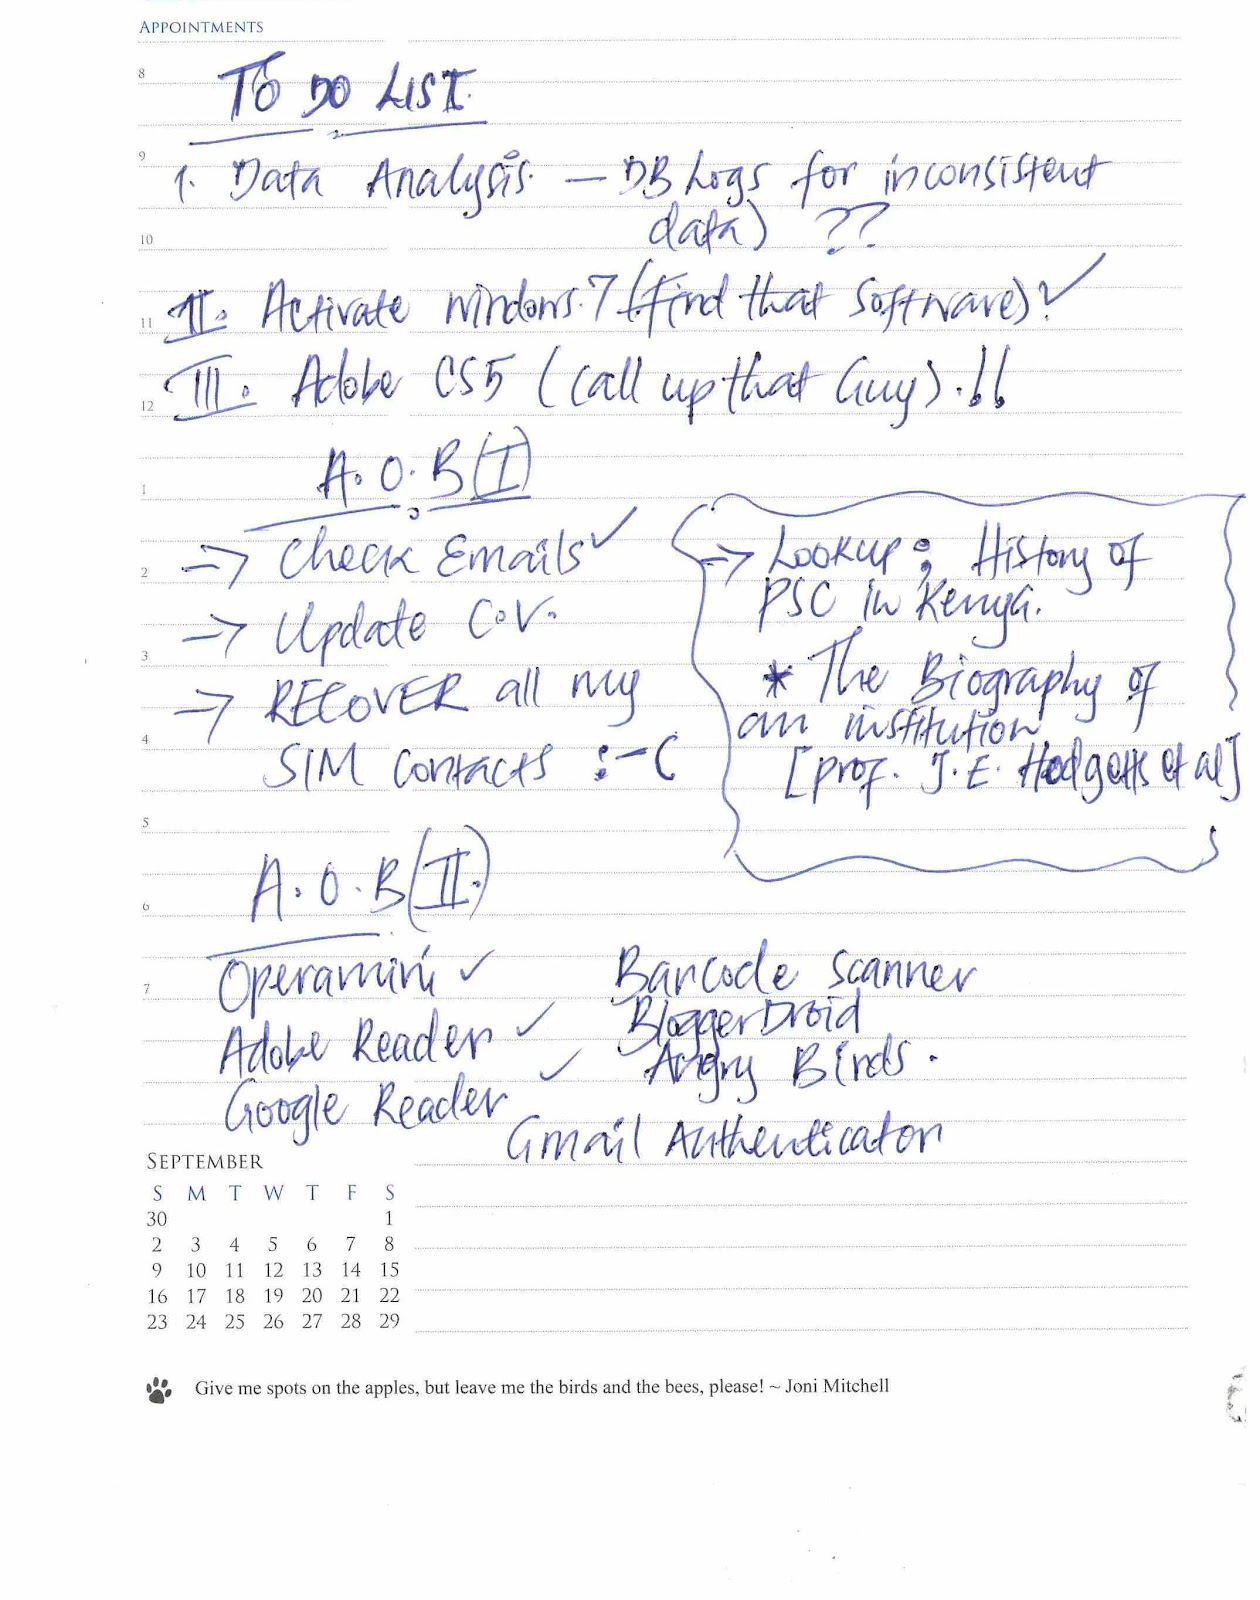 APPOINTMENTS
8
TO DO LIST.
9
1. Data Analysis. — DB Logs for inconsistent
data) ??
10
II. Activate windows 7 (find that software) ✓
11
III. Adobe CS5 (call up that Guy).!!
12
A.O.B(I)
1
=> Check Emails ✓
2
=> Update C.V.
3
=> RECOVER all my
4
SIM contacts :-(
=> Lookup: History of
PSC in Kenya.
* The Biography of
an institution
[prof. J.E. Hodgetts et al]
5
A.O.B(II.)
6
Operamini ✓
7
Adobe Reader ✓
Google Reader ✓
Barcode Scanner
BloggerDroid
Angry Birds.
Gmail Authenticator
SEPTEMBER
S M T W T F S
30 1
2 3 4 5 6 7 8
9 10 11 12 13 14 15
16 17 18 19 20 21 22
23 24 25 26 27 28 29
Give me spots on the apples, but leave me the birds and the bees, please! ~ Joni Mitchell